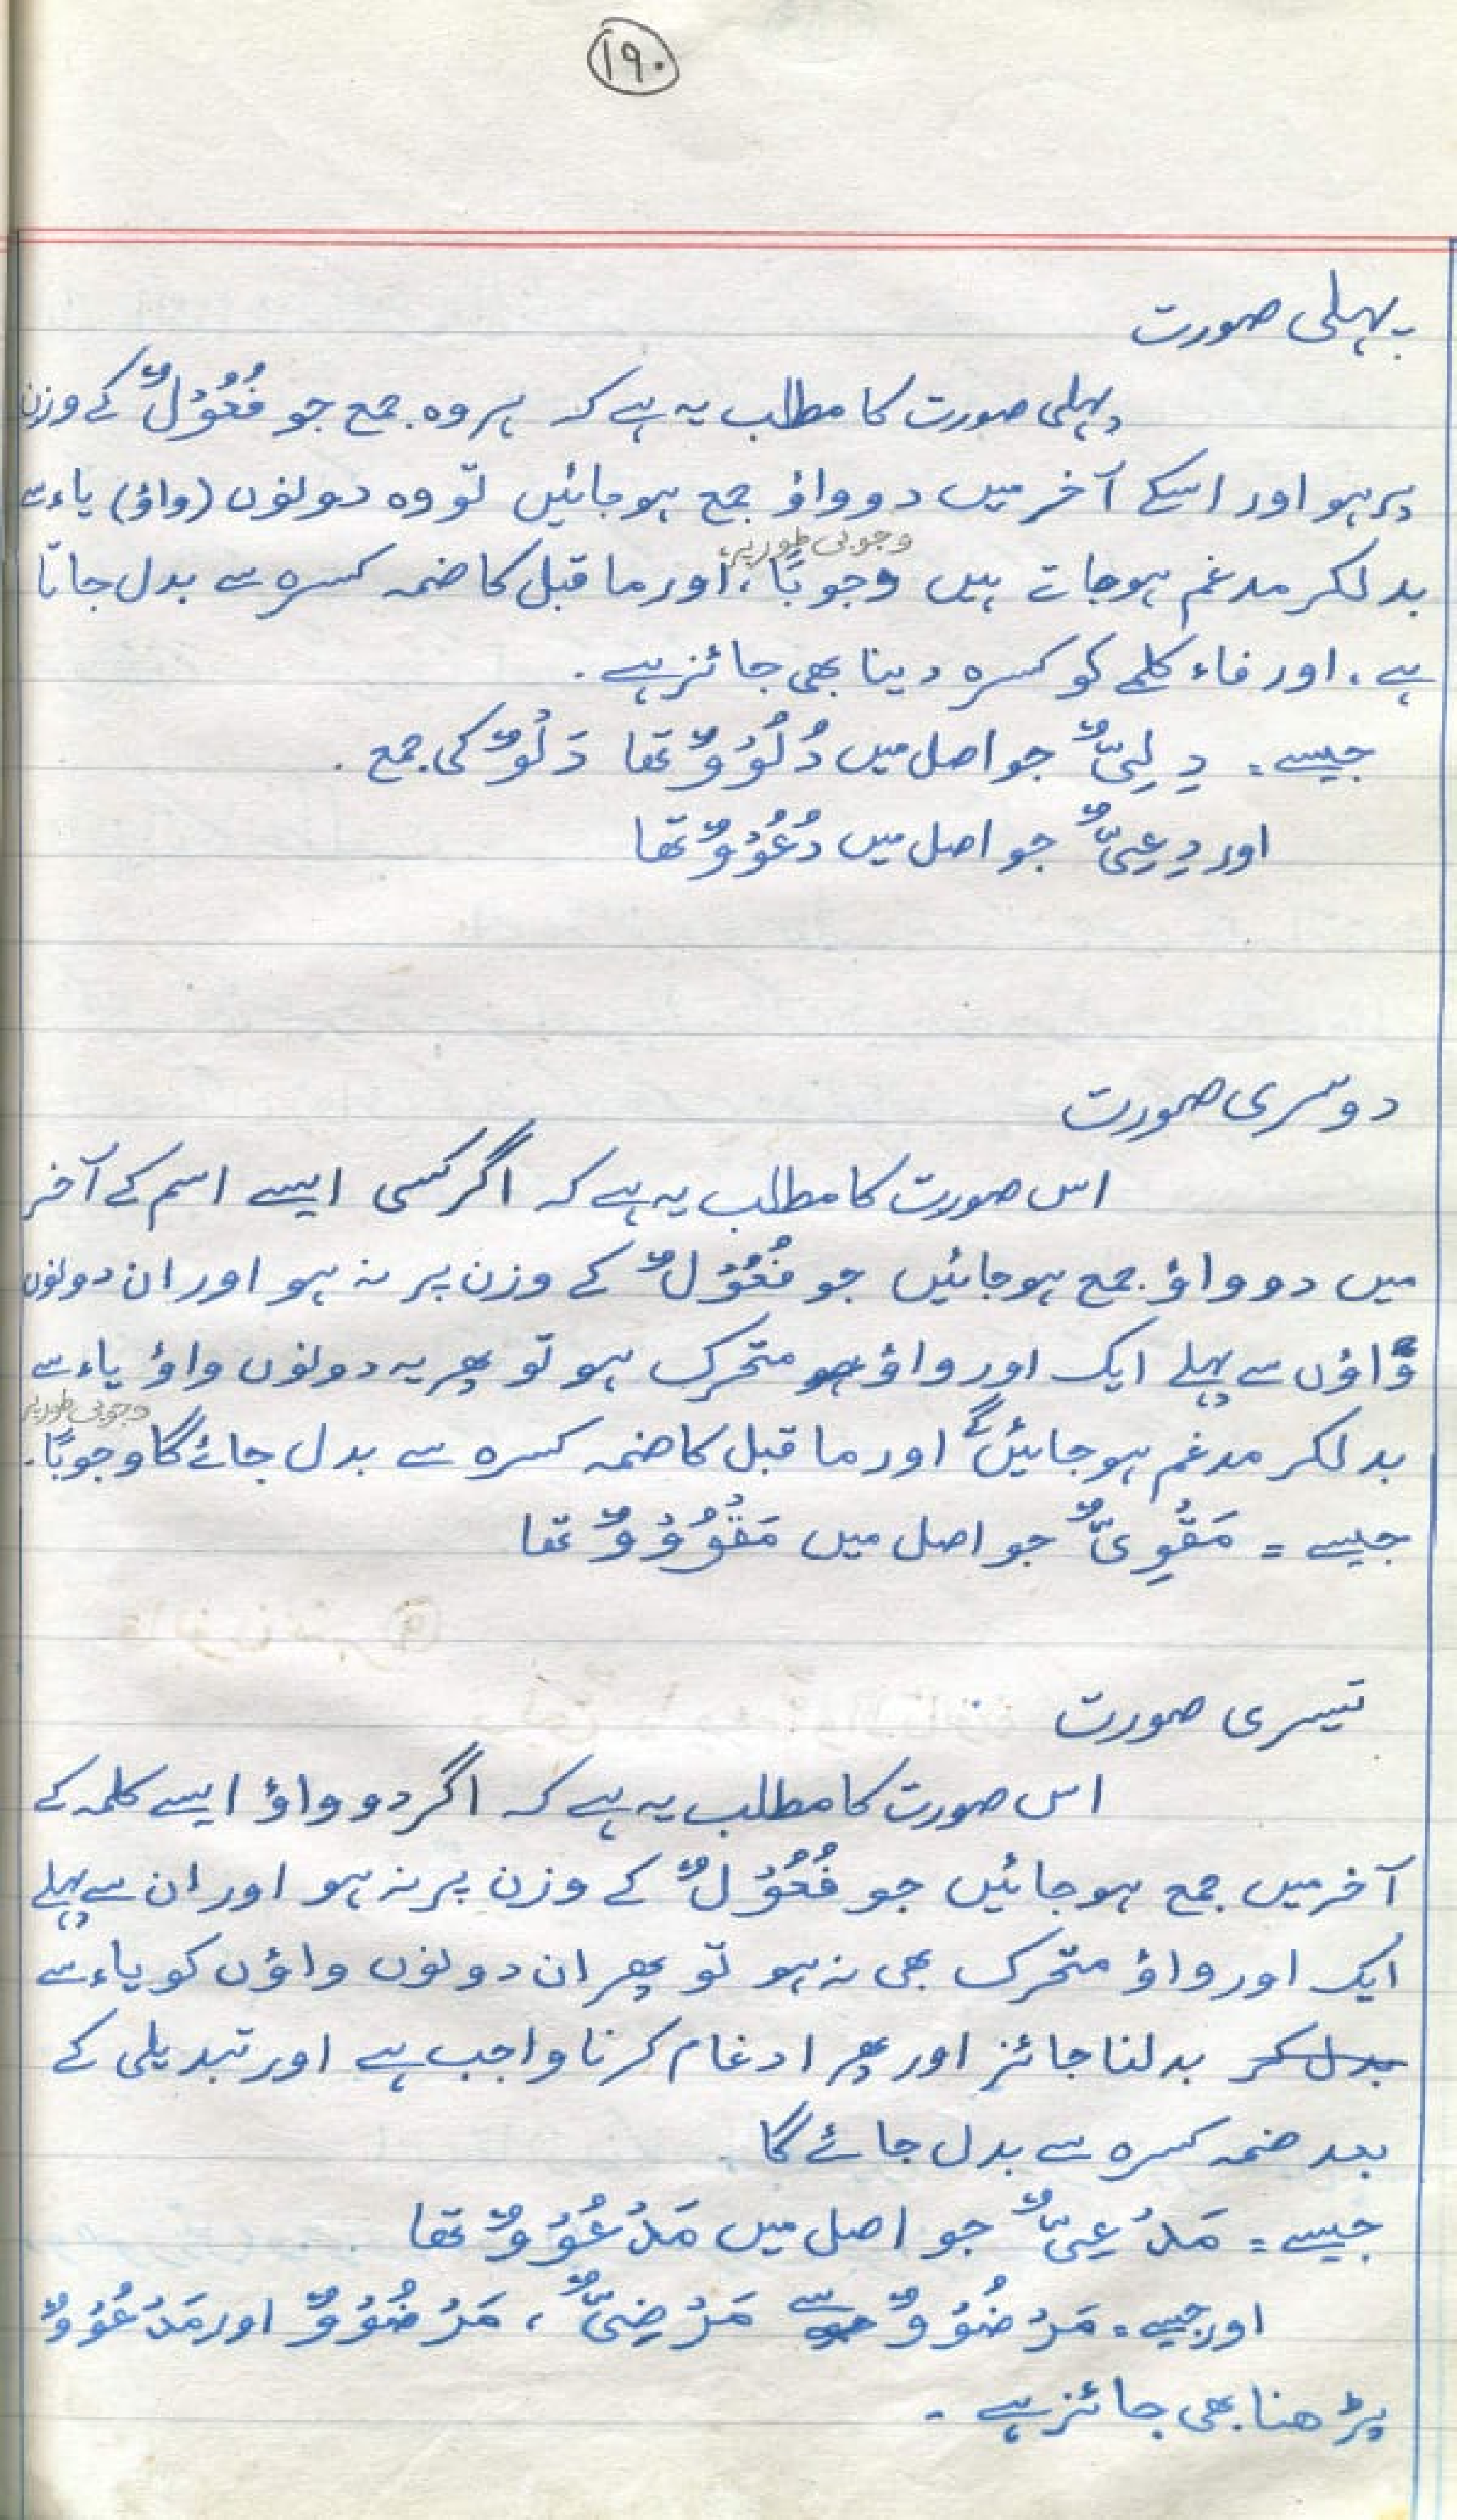 ۱۹۰
پہلی صورت
پہلی صورت کا مطلب یہ ہے کہ ہر وہ جمع جو فُعُوْلٌ کے وزن
پر ہو اور اسکے آخر میں دو واؤ جمع ہوجائیں تو وہ دونوں (واؤ) یاء سے
وجوبی طور پر
بدلکر مدغم ہوجاتے ہیں وجوبًا، اور ما قبل کا ضمہ کسرہ سے بدل جاتا
ہے، اور فاء کلمے کو کسرہ دینا بھی جائز ہے۔
جیسے = دِلِیٌّ جو اصل میں دُلُوْوٌ تھا دَلْوٌ کی جمع۔
اور دِعِیٌّ جو اصل میں دُعُوْوٌ تھا
دوسری صورت
اس صورت کا مطلب یہ ہے کہ اگر کسی ایسے اسم کے آخر
میں دو واؤ جمع ہوجائیں جو فُعُوْلٌ کے وزن پر نہ ہو اور ان دونوں
واؤں سے پہلے ایک اور واؤ متحرک ہو تو پھر یہ دونوں واؤ یاء سے
وجوبی طور پر
بدلکر مدغم ہوجائیں گے اور ما قبل کا ضمہ کسرہ سے بدل جائے گا وجوبًا۔
جیسے = مَقْوِیٌّ جو اصل میں مَقْوُوْوٌ تھا
تیسری صورت
اس صورت کا مطلب یہ ہے کہ اگر دو واؤ ایسے کلمہ کے
آخر میں جمع ہوجائیں جو فُعُوْلٌ کے وزن پر نہ ہو اور ان سے پہلے
ایک اور واؤ متحرک بھی نہ ہو تو پھر ان دونوں واؤں کو یاء سے
بدل کر بدلنا جائز اور پھر ادغام کرنا واجب ہے اور تبدیلی کے
بعد ضمہ کسرہ سے بدل جائے گا
جیسے = مَدْعِیٌّ جو اصل میں مَدْعُوْوٌ تھا
اور جیسے = مَرْضُوْوٌ سے مَرْضِیٌّ، مَرْضُوْوٌ اور مَدْعُوْوٌ
پڑھنا بھی جائز ہے۔